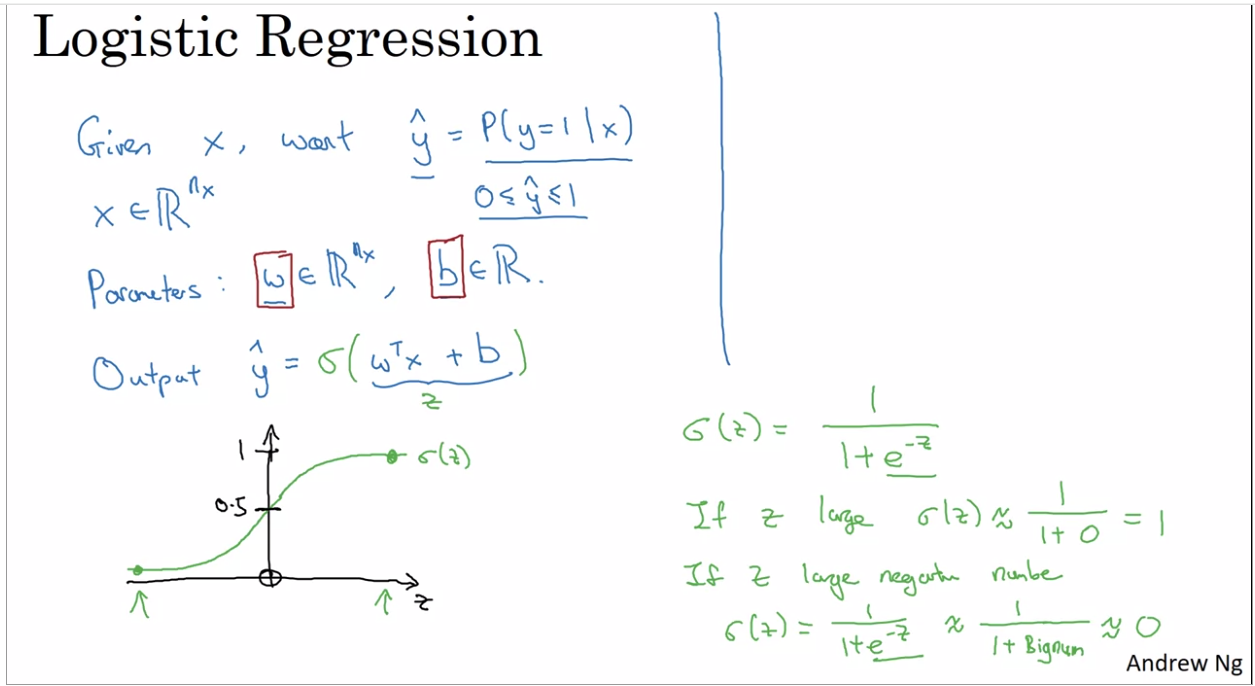 Logistic Regression
Given x, want ŷ = P(y=1|x)
x ∈ ℝⁿˣ
0 ≤ ŷ ≤ 1
Parameters: w ∈ ℝⁿˣ, b ∈ ℝ.
Output ŷ = σ(wᵀx + b)
z
1
σ(z)
0.5
z
σ(z) = 1 / (1 + e^(-z))
If z large σ(z) ≈ 1 / (1 + 0) = 1
If z large negative number
σ(z) = 1 / (1 + e^(-z)) ≈ 1 / (1 + Bignum) ≈ 0
Andrew Ng